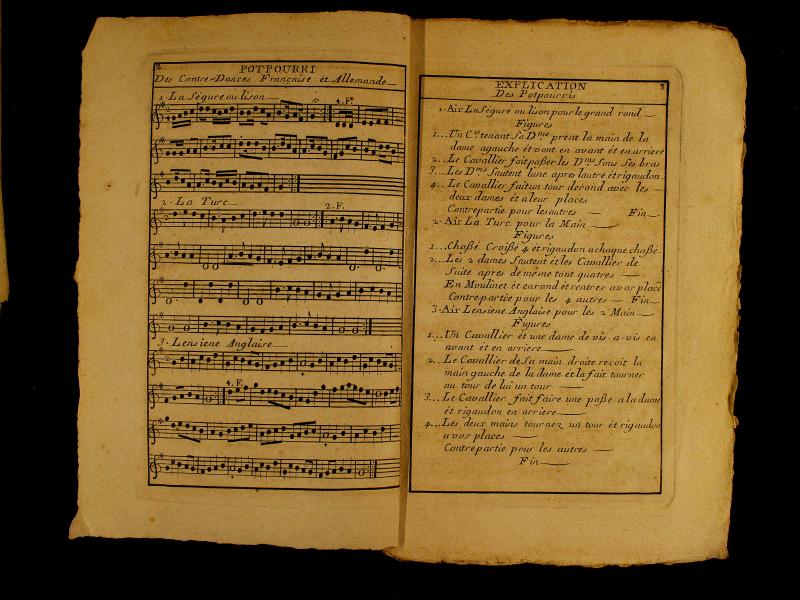 2
POTPOURRI
Des Contre-Dances Française et Allemande
1. La Ségure ou lison
4. F.s
2. La Turc
2. F.
3. Lensiene Anglaise
4. F.
EXPLICATION 3
Des Potpourris
1. Air La Seguré ou lison pour le grand rond
Figures
1... Un C.er tenant Sa D.me prent la main de la
dame agauche et vont en avant ét en arriere
2... Le Cavallier fait paßer les D.mes Sous Ses bras
3... Les D.mes Sautent lune apres lautre ét rigaudon
4... Le Cavallier fait un tour de rond avec les
deux dames ét a leur places
Contrepartie pour les autres Fin
2. Air La Turc pour la Main
Figures
1... Chaßé Croißé 4 ét rigaudon a chaque chaßé
2... Les 2 dames Sautent ét les Cavallier de
Suite apres de même tout quatres
En Moulinet ét en rond ét rentres a vos place
Contrepartie pour les 4 autres Fin
3. Air Lensiene Anglaise pour les 2 Main
Figures
1... Un Cavallier ét une dame de vis a vis en
avant ét en arriere
2... Le Cavallier de Sa main droite recoit la
main gauche de la dame ét la fait tourner
au tour de lui un tour
3... Le Cavallier fait faire une paße a la dame
ét rigaudon en arriere
4... Les deux mains tournez un tour ét rigaudon
a vos places
Contrepartie pour les autres
Fin